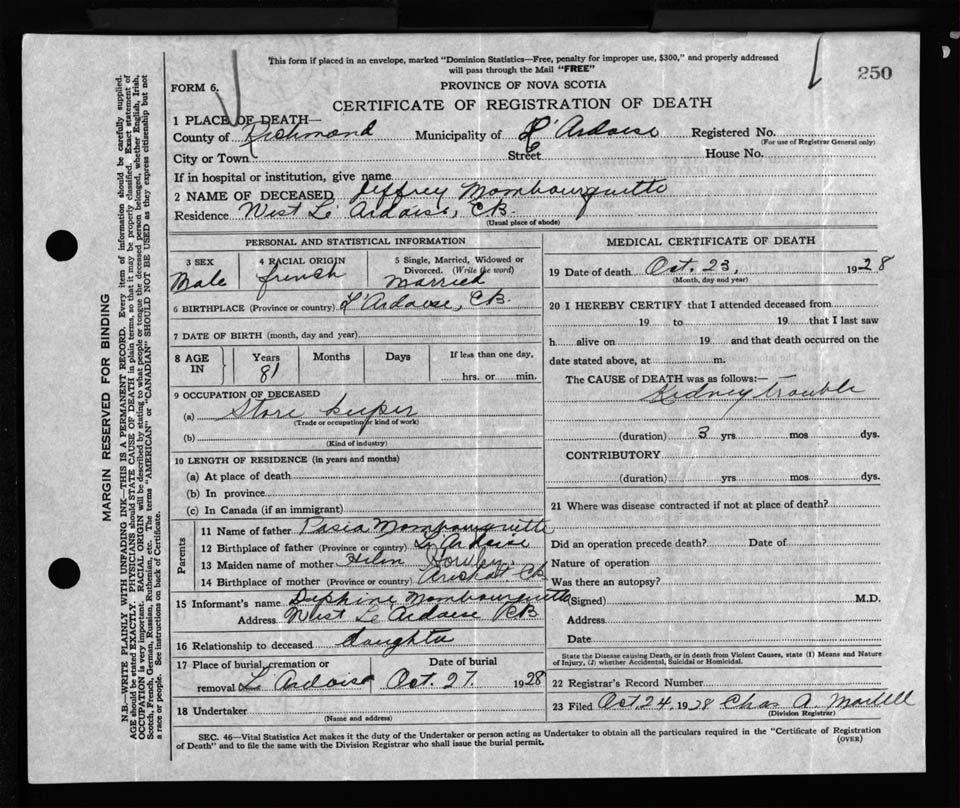 This form if placed in an envelope, marked "Dominion Statistics—Free, penalty for improper use, $300," and properly addressed
will pass through the Mail "FREE"
250
FORM 6.
PROVINCE OF NOVA SCOTIA
CERTIFICATE OF REGISTRATION OF DEATH
1 PLACE OF DEATH—
County of Richmond Municipality of L'Ardoise Registered No.
(For use of Registrar General only)
City or Town Street House No.
If in hospital or institution, give name
2 NAME OF DECEASED Jeffrey Mombourquette
Residence West L'Ardoise, C.B.
(Usual place of abode)
PERSONAL AND STATISTICAL INFORMATION
3 SEX
Male
4 RACIAL ORIGIN
french
5 Single, Married, Widowed or
Divorced. (Write the word)
Married
6 BIRTHPLACE (Province or country) L'Ardoise, C.B.
7 DATE OF BIRTH (month, day and year)
8 AGE IN
Years Months Days If less than one day,
81 hrs. or min.
9 OCCUPATION OF DECEASED
(a) Store keeper
(Trade or occupation or kind of work)
(b)
(Kind of industry)
10 LENGTH OF RESIDENCE (in years and months)
(a) At place of death
(b) In province
(c) In Canada (if an immigrant)
Parents
11 Name of father Mombourquette
12 Birthplace of father (Province or country) L'Ardoise
13 Maiden name of mother Helen
14 Birthplace of mother (Province or country) Arichat C.B.
15 Informant's name Daphine Mombourquette
Address West L'Ardoise C.B.
16 Relationship to deceased daughter
17 Place of burial, cremation or Date of burial
removal L'Ardoise Oct. 27. 1928
18 Undertaker
(Name and address)
MEDICAL CERTIFICATE OF DEATH
19 Date of death Oct. 23, 1928
(Month, day and year)
20 I HEREBY CERTIFY that I attended deceased from
19 to 19 that I last saw
h alive on 19 and that death occurred on the
date stated above, at m.
The CAUSE of DEATH was as follows:—
Kidney trouble
(duration) 3 yrs mos dys.
CONTRIBUTORY
(duration) yrs mos dys.
21 Where was disease contracted if not at place of death?
Did an operation precede death? Date of
Nature of operation
Was there an autopsy?
(Signed) M.D.
Address
Date
State the Disease causing Death, or in death from Violent Causes, state (1) Means and Nature
of Injury, (2) whether Accidental, Suicidal or Homicidal.
22 Registrar's Record Number
23 Filed Oct 24, 1928 Chas A. Martell
(Division Registrar)
SEC. 46—Vital Statistics Act makes it the duty of the Undertaker or person acting as Undertaker to obtain all the particulars required in the "Certificate of Registration
of Death" and to file the same with the Division Registrar who shall issue the burial permit.
(OVER)
MARGIN RESERVED FOR BINDING
N.B.—WRITE PLAINLY WITH UNFADING INK—THIS IS A PERMANENT RECORD. Every item of information should be carefully supplied.
AGE should be stated EXACTLY. PHYSICIANS should STATE CAUSE OF DEATH in plain terms, so that it may be properly classified. Exact statement of
OCCUPATION is very important. RACIAL ORIGIN will be described by stating to what people or tongue the deceased person belonged, whether English, Irish,
Scotch, French, German, Russian, Ruthenian, etc. The terms "AMERICAN" or "CANADIAN" SHOULD NOT BE USED as they express citizenship but not
a race or people. See instructions on back of Certificate.